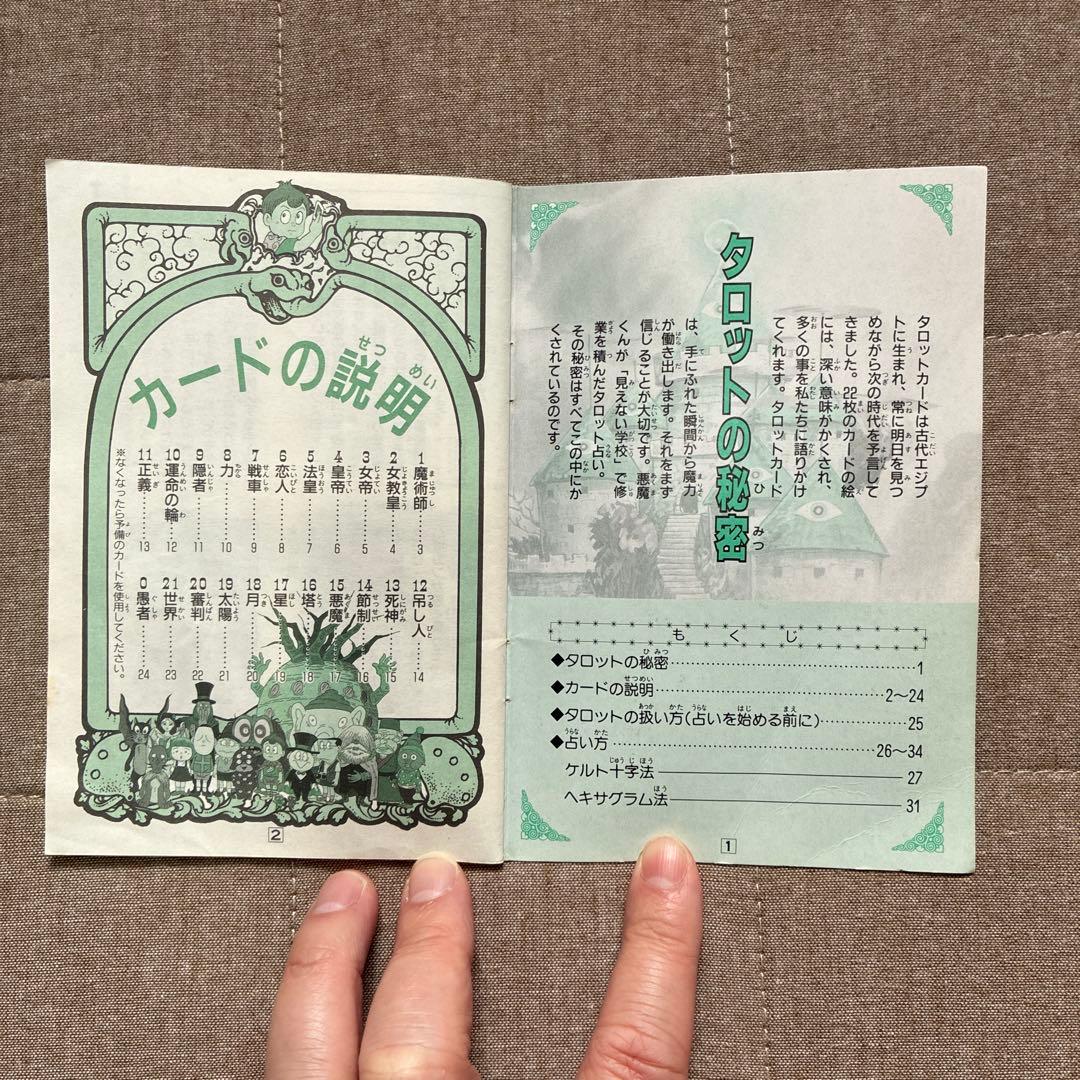 タロットの秘密
タロットカードは古代エジプ
トに生まれ、常に明日を見つ
めながら次の時代を予言して
きました。22枚のカードの絵
には、深い意味がかくされ、
多くの事を私たちに語りかけ
てくれます。タロットカード
は、手にふれた瞬間から魔力
が働き出します。それをまず
信じることが大切です。悪魔
くんが「見えない学校」で修
業を積んだタロット占い。
その秘密はすべてこの中にか
くされているのです。
もくじ
◆タロットの秘密 1
◆カードの説明 2〜24
◆タロットの扱い方(占いを始める前に) 25
◆占い方 26〜34
ケルト十字法 27
ヘキサグラム法 31
1
カードの説明
1 魔術師 3
2 女教皇 4
3 女帝 5
4 皇帝 6
5 法皇 7
6 恋人 8
7 戦車 9
8 力 10
9 隠者 11
10 運命の輪 12
11 正義 13
12 吊し人 14
13 死神 15
14 節制 16
15 悪魔 17
16 塔 18
17 星 19
18 月 20
19 太陽 21
20 審判 22
21 世界 23
0 愚者 24
※なくなったら予備のカードを使用してください。
2